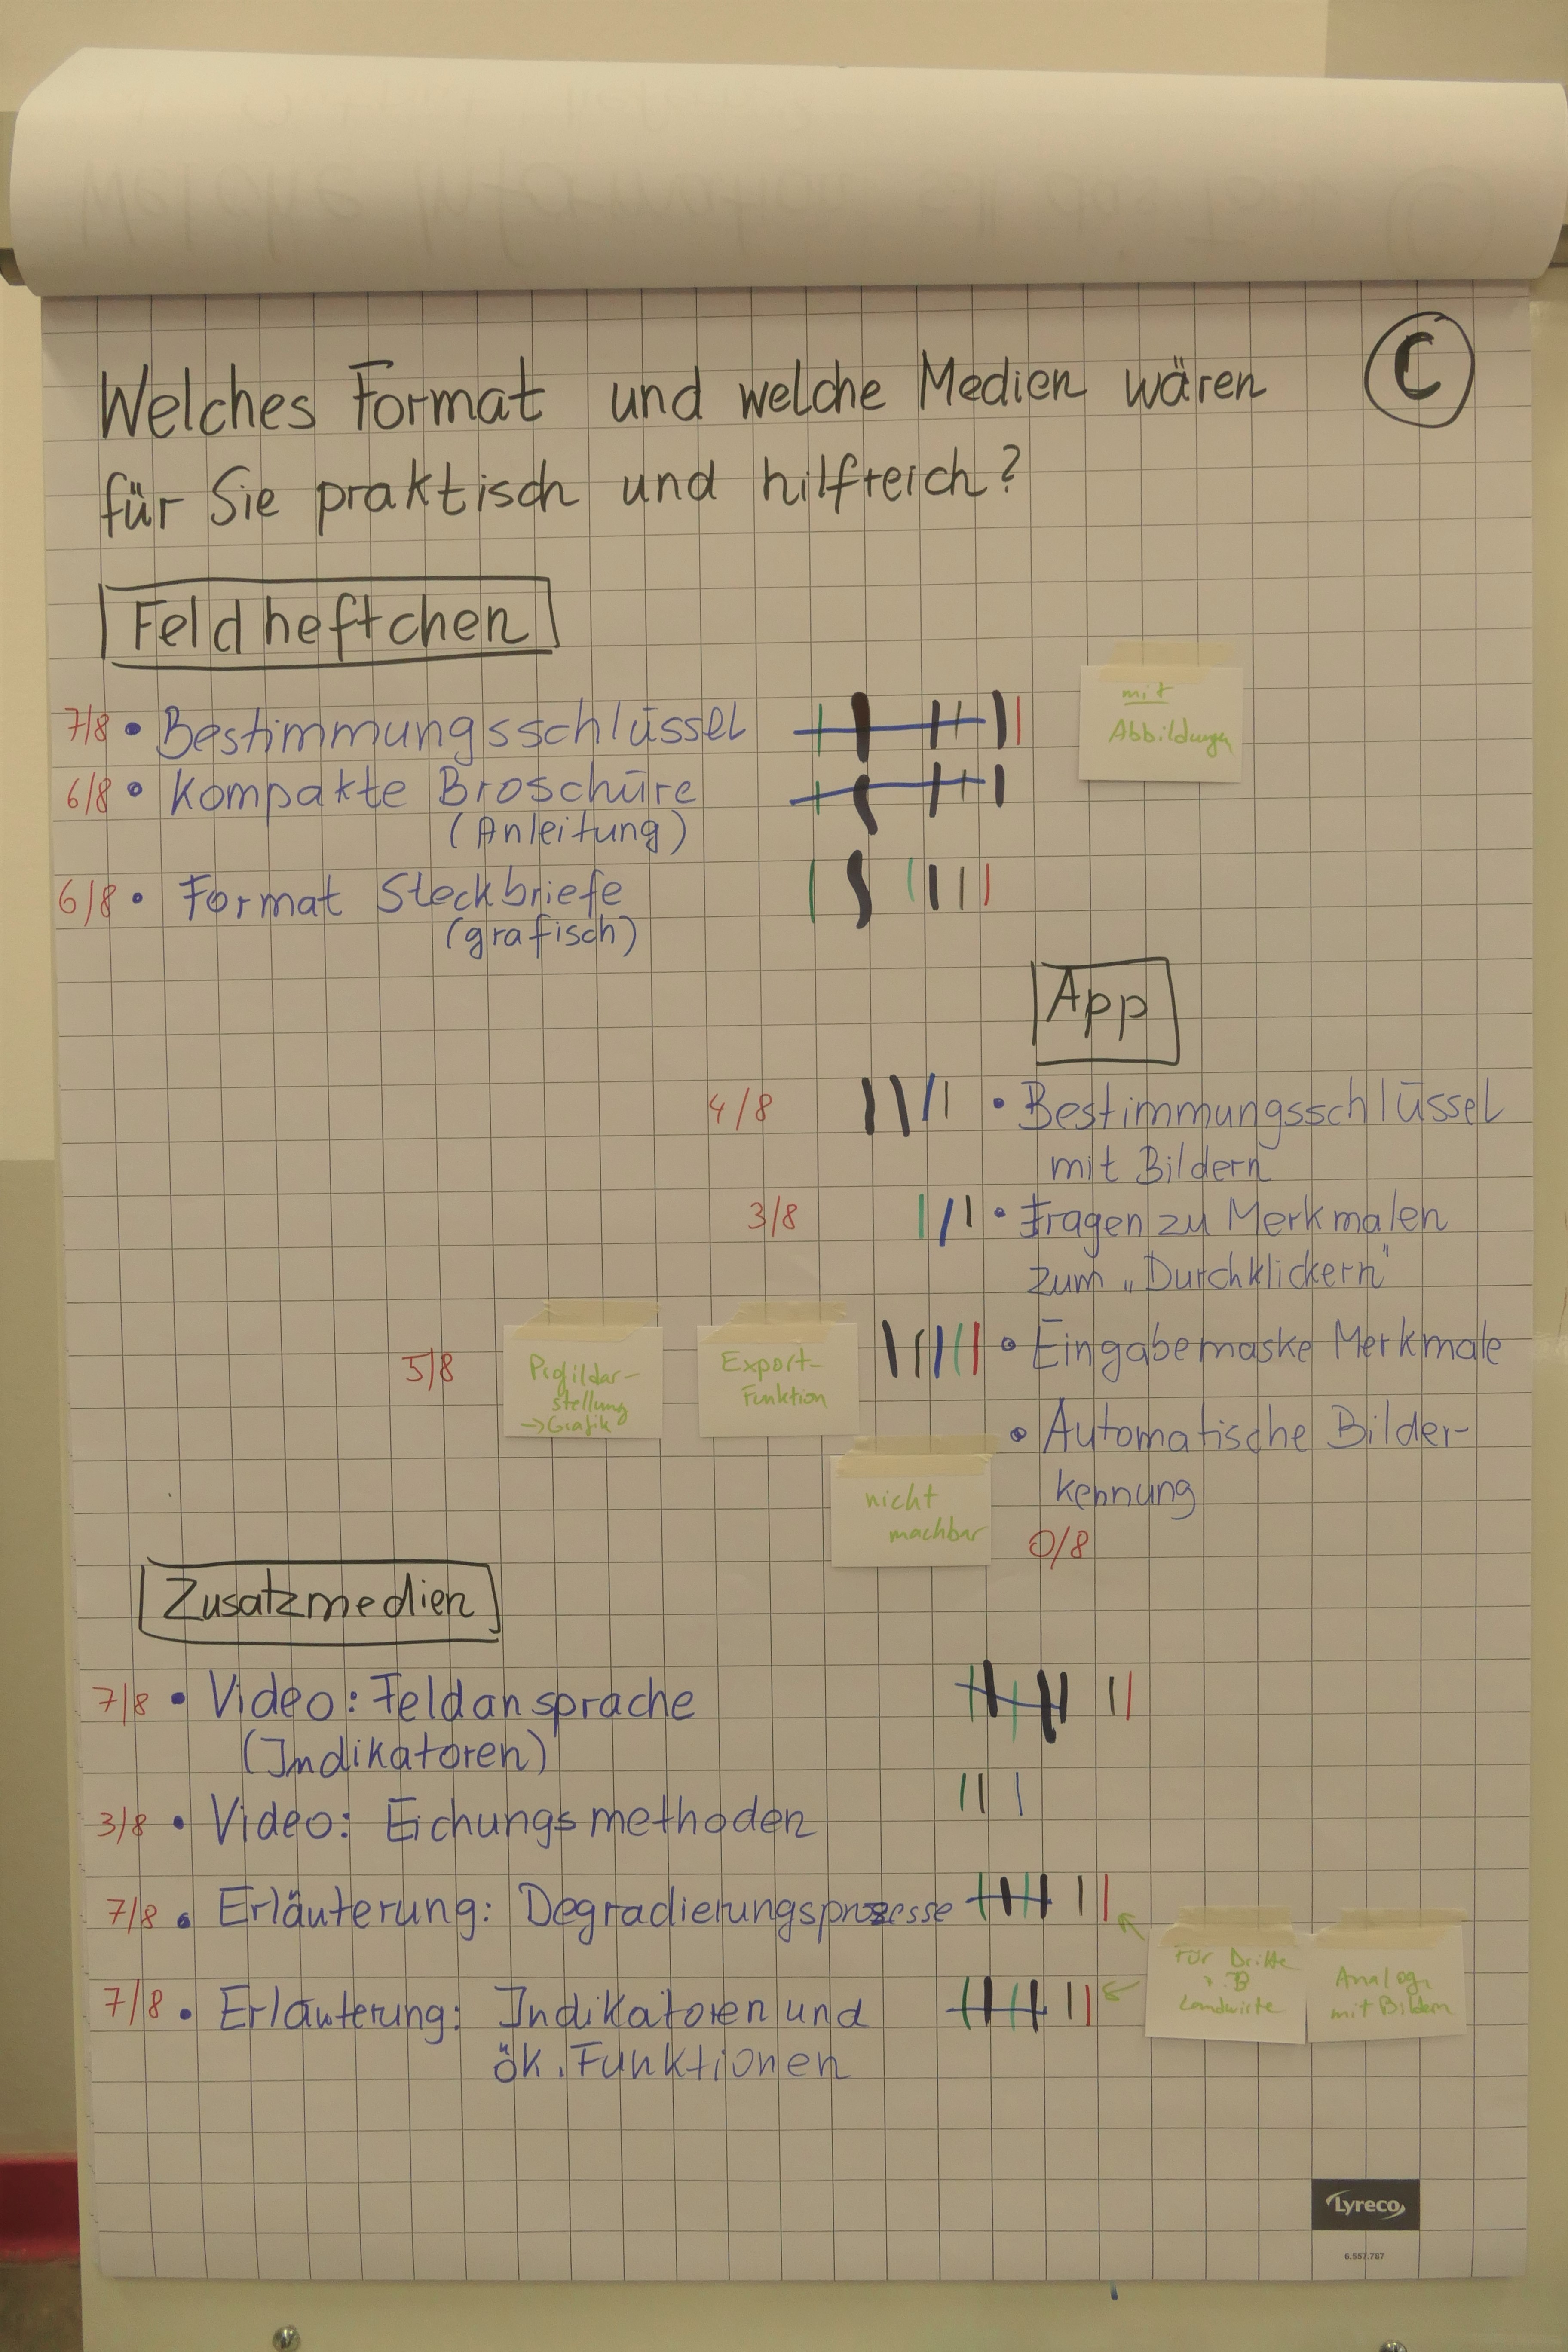 C
Welches Format und welche Medien wären
für Sie praktisch und hilfreich?
Feldheftchen
7/8 • Bestimmungsschlüssel
mit
Abbildungen
6/8 • Kompakte Broschüre
(Anleitung)
6/8 • Format Steckbriefe
(grafisch)
App
4/8 • Bestimmungsschlüssel
mit Bildern
3/8 • Fragen zu Merkmalen
zum „Durchklickern"
5/8 • Eingabemaske Merkmale
Profildar-
stellung
→ Grafik
Export-
Funktion
• Automatische Bilder-
kennung
0/8
nicht
machbar
Zusatzmedien
7/8 • Video: Feldansprache
(Indikatoren)
3/8 • Video: Eichungsmethoden
7/8 • Erläuterung: Degradierungsprozesse
7/8 • Erläuterung: Indikatoren und
ök. Funktionen
Für Dritte
z.B
Landwirte
Analog
mit Bildern
Lyreco
6.557.787